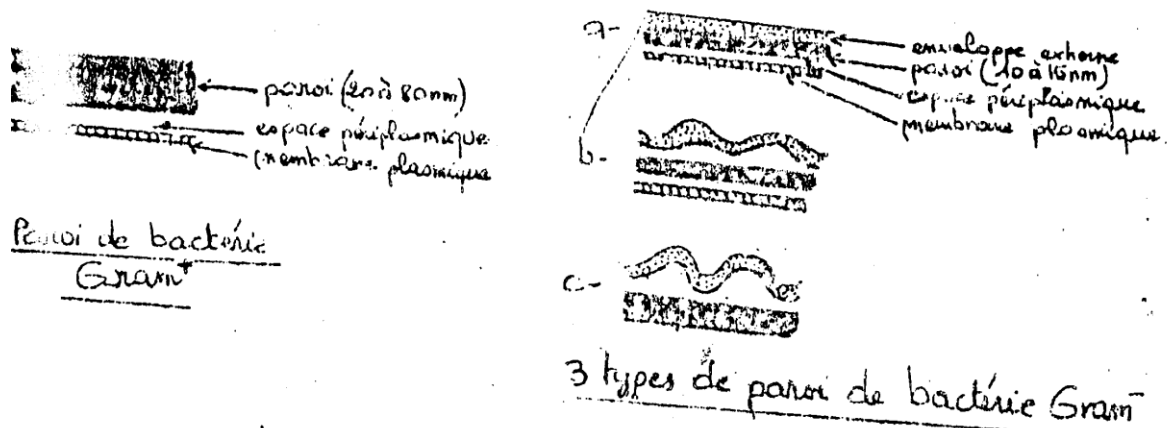 paroi (20 à 80nm)
espace périplasmique
membrane plasmique
Paroi de bactérie
Gram+
a-
enveloppe externe
paroi (10 à 15nm)
espace périplasmique
membrane plasmique
b-
c-
3 types de paroi de bactérie Gram-